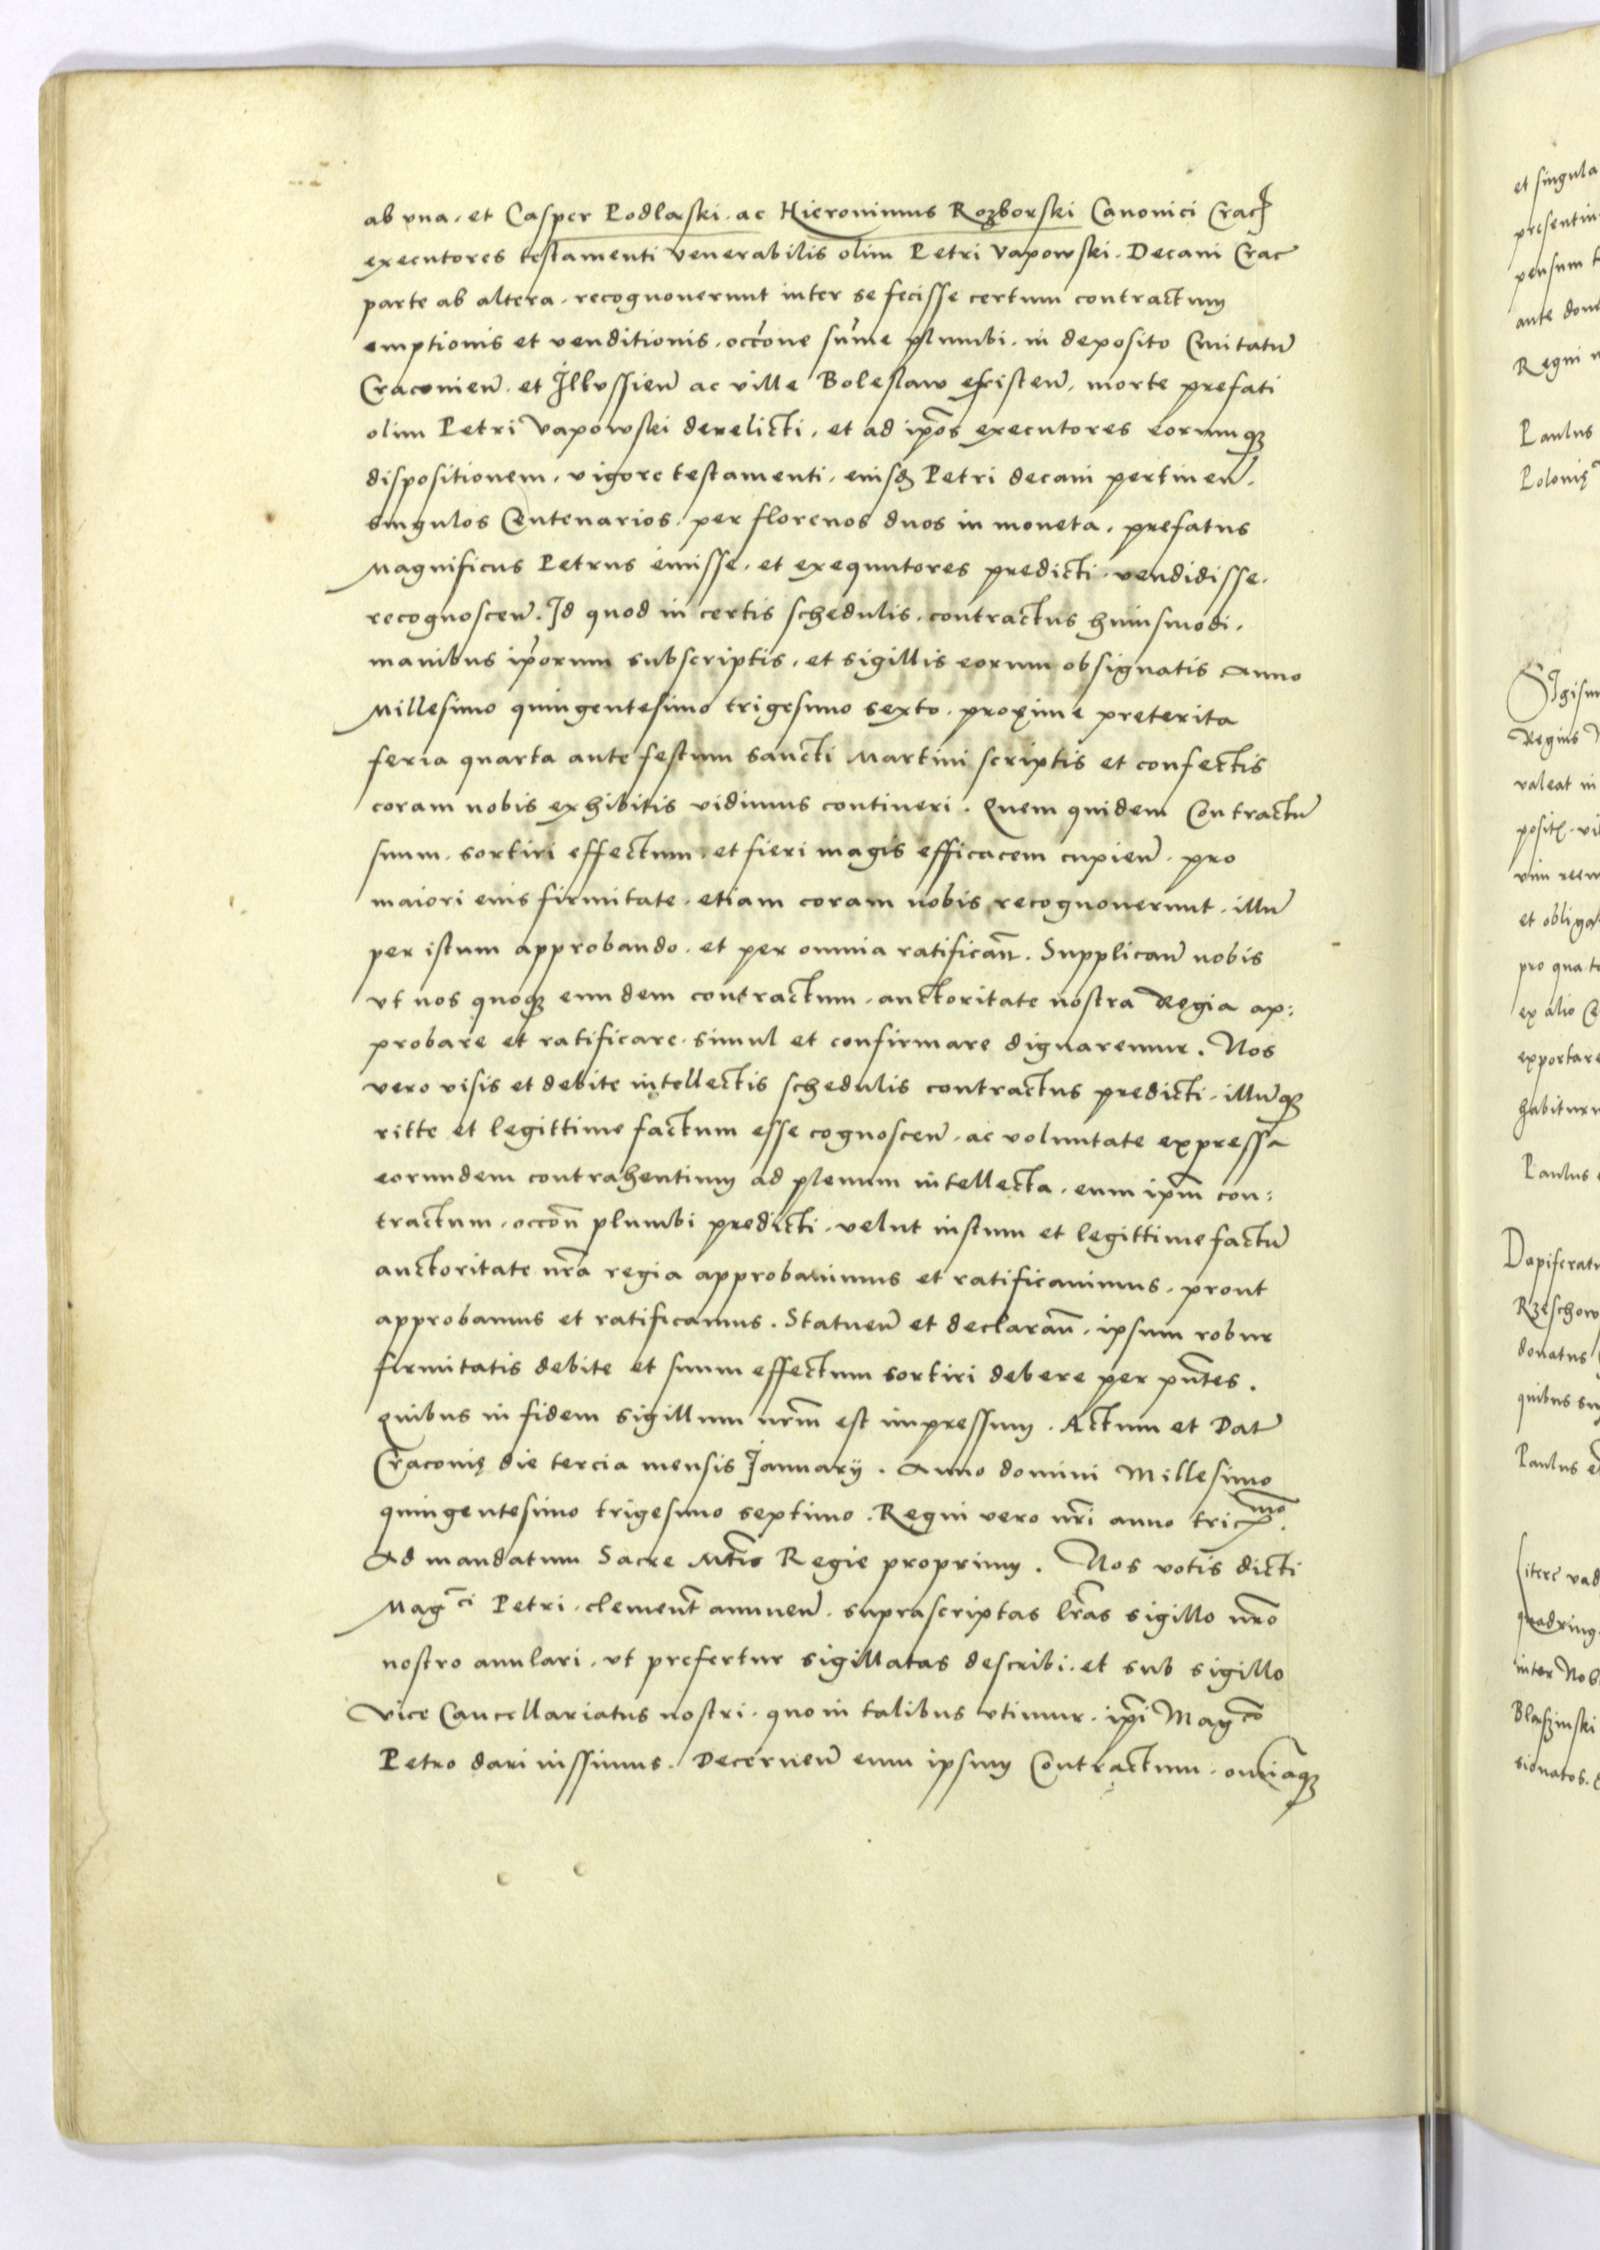 ab vna. et Casper Podlaski. ac Hieronimus Rozborski Canonici Crac
executores testamenti venerabilis olim Petri Vapowski. Decani Crac
parte ab altera. recognouerunt inter se fecisse certum contractum
emptionis et venditionis. occone sume plumbi. in deposito Ciuitatū
Cracouieñ. et Jllvssieñ ac ville Boleslaw existeñ. morte prefati
olim Petri Vapowski derelicti. et ad ipōs executores eorumq
dispositionem. vigore testamenti. eiusd Petri decani pertineñ.
singulos Centenarios. per florenos duos in moneta. prefatus
Magnificus Petrus emisse. et exequutores predicti. vendidisse.
recognosceñ. Jd quod in certis schedulis. contractus huiusmodi.
manibus ip̄orum subscriptis. et sigillis eorum obsignatis Anno
Millesimo quingentesimo trigesimo sexto. proxime preterita
feria quarta ante festum sancti Martini scriptis et confectis
coram nobis exhibitis vidimus contineri. Quem quidem Contractū
suum. sortiri effectum. et fieri magis efficacem cupieñ. pro
maiori eius firmitate. etiam coram nobis recognouerunt. illū
per istum approbando. et per omnia ratificañ. Supplicañ nobis
vt nos quoq eundem contractum. auctoritate nostra Regia ap:
probare et ratificare. simul et confirmare dignaremur. Nos
vero visis et debite intellectis schedulis contractus predicti. illūq
ritte et legittime factum esse cognosceñ. ac voluntate expressa
eorundem contrahentium ad plenum intellecta. eum ipm̄ con:
tractum. occoñ plumbi predicti. velut iustum et legittime factū
auctoritate nr̄a regia approbauimus et ratificauimus. prout
approbamus et ratificamus. Statueñ et declarañ. ipsum robur
firmitatis debite et suum effectum sortiri debere per pn̄tes.
Quibus in fidem sigillum nrm̄ est impressum. Actum et Dat
Cracouię die tercia mensis Januarij. Anno domini Millesimo
quingentesimo trigesimo septimo. Regni vero nr̄i anno tric mo.
Ad mandatum Sacre Mt̄is Regie proprium. Nos votis dicti
Mag ci Petri. clement̄ annueñ. suprascriptas lr̄as sigillo nr̄o
nostro anulari. vt prefertur sigillatas describi. et sub sigillo
Vice Cancellariatus nostri. quo in talibus vtimur. ip̄i Mag co
Petro dari iussimus. Decerneñ eum ipsum Contractum. omniaq
et singula
ante
Regni
Paulus
Polonię
Regius
valeat in
et obliga
pro qua
ex alio
exportare
habitur
Paulus
Rzeschow
donatus
quibus
Paulus
inter Nob